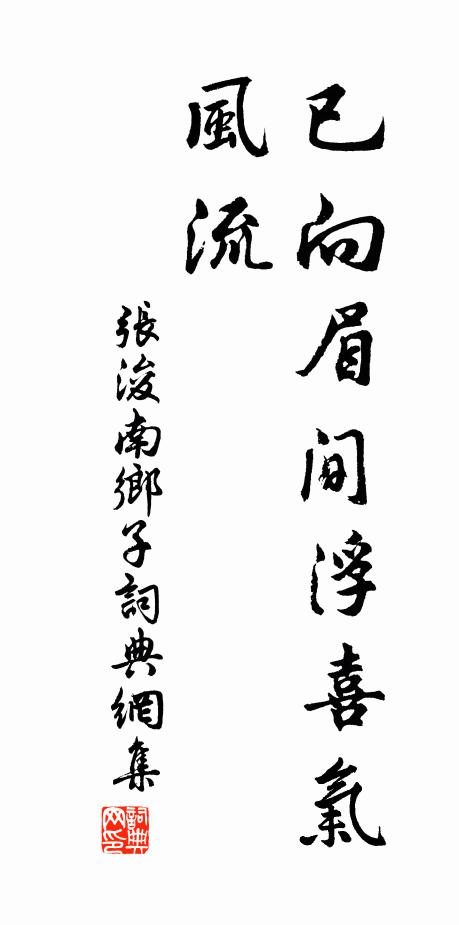 已向眉間浮喜氣
風流
張浚南鄉子詞典網集
詞典網印